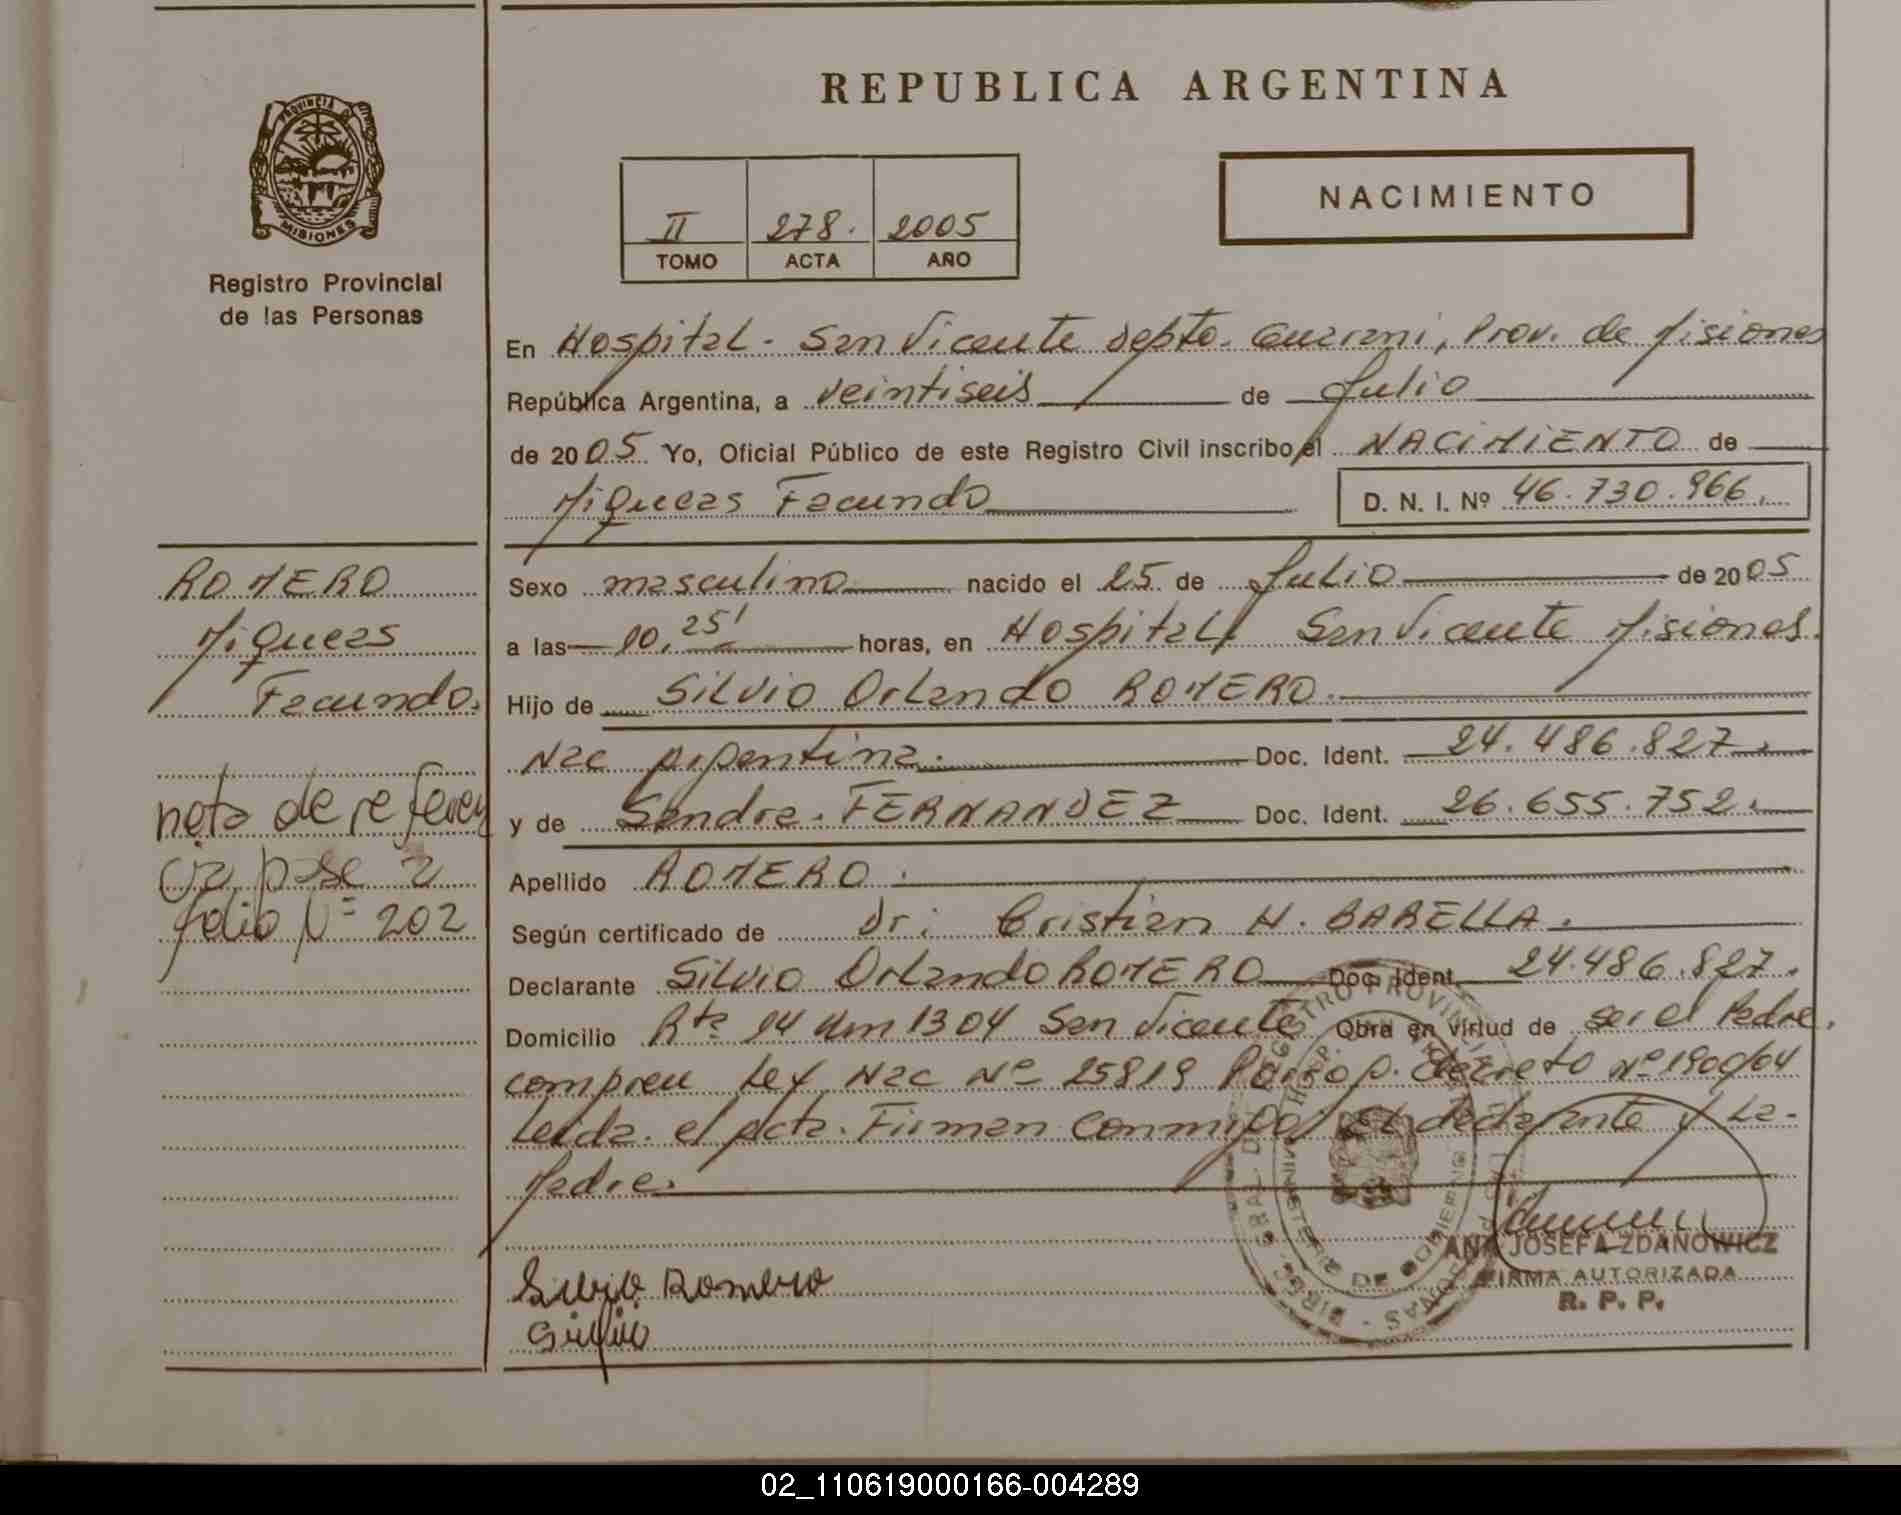 REPUBLICA ARGENTINA
PROVINCIA DE
MISIONES
Registro Provincial
de las Personas
II 278. 2005
TOMO ACTA AÑO
NACIMIENTO
En Hospital - San Vicente Depto. Guarani, Prov. de Misiones
República Argentina, a veintiseis de Julio
de 2005 Yo, Oficial Público de este Registro Civil inscribo el NACIMIENTO de
Miqueas Facundo D. N. I. Nº 46.730.966.
ROMERO
Miqueas
Facundo.
nota de referen
cia pase a
folio Nº 202
Sexo masculino nacido el 25 de Julio de 2005
a las 10,25' horas, en Hospital, San Vicente Misiones.
Hijo de Silvio Orlando ROMERO.
Nac Argentina. Doc. Ident. 24.486.827.
y de Sandra. FERNANDEZ Doc. Ident. 26.655.752.
Apellido ROMERO.
Según certificado de Dr: Cristian H. BARELLA.
Declarante Silvio Orlando ROMERO Doc. Ident. 24.486.827.
Domicilio Rta 14 Km 1304 San Vicente Obra en virtud de ser el Padre.
Ley Nac Nº 25819 decreto Nº 1900/04
Leida. el acta. Firman Conmigo, El declarante y La-
Madre.
Silvio Romero
ANA JOSEFA ZDANOWICZ
FIRMA AUTORIZADA
R. P. P.
MINISTERIO DE GOBIERNO
02_110619000166-004289